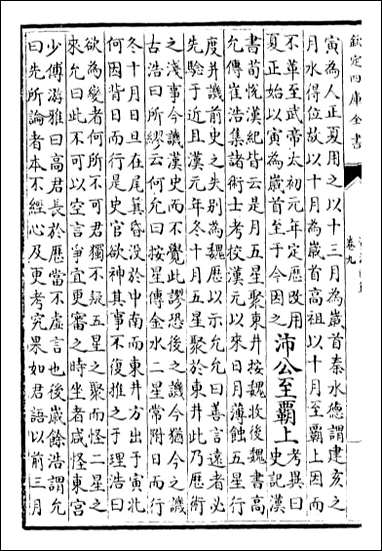 欽定四庫全書
卷九
寅為人正夏用之以十三月為嵗首秦水德謂建亥之
月水得位故以十月為嵗首高祖以十月至霸上因而
不革至武帝太初元年定歴改用
夏正始以寅為嵗首至于今因之
沛公至霸上
考異曰
史記漢
書荀悦漢紀皆云是月五星聚東井按魏收後魏書高
允傳崔浩集諸術士考校漢元以來日月薄蝕五星行
度并譏前史之失别為魏歴以示允允曰善言逺者必
先驗于近且漢元年冬十月五星聚於東井此乃歴術
之淺事今譏漢史而不覺此謬恐後之譏今猶今之譏
古浩曰所繆云何允曰按星傳金水二星常附日而行
冬十月日旦在尾箕昏沒於申南而東井方出于寅北
何因背日而行是史官欲神其事不復推之于理浩曰
欲為變者何所不可君獨不疑五星之聚而怪二星之
來允曰此不可以空言爭宜更審之時坐者咸怪東宫
少傅游雅曰高君長於歴當不虚言也後嵗餘浩謂允
曰先所論者本不經心及更考究果如君語以前三月